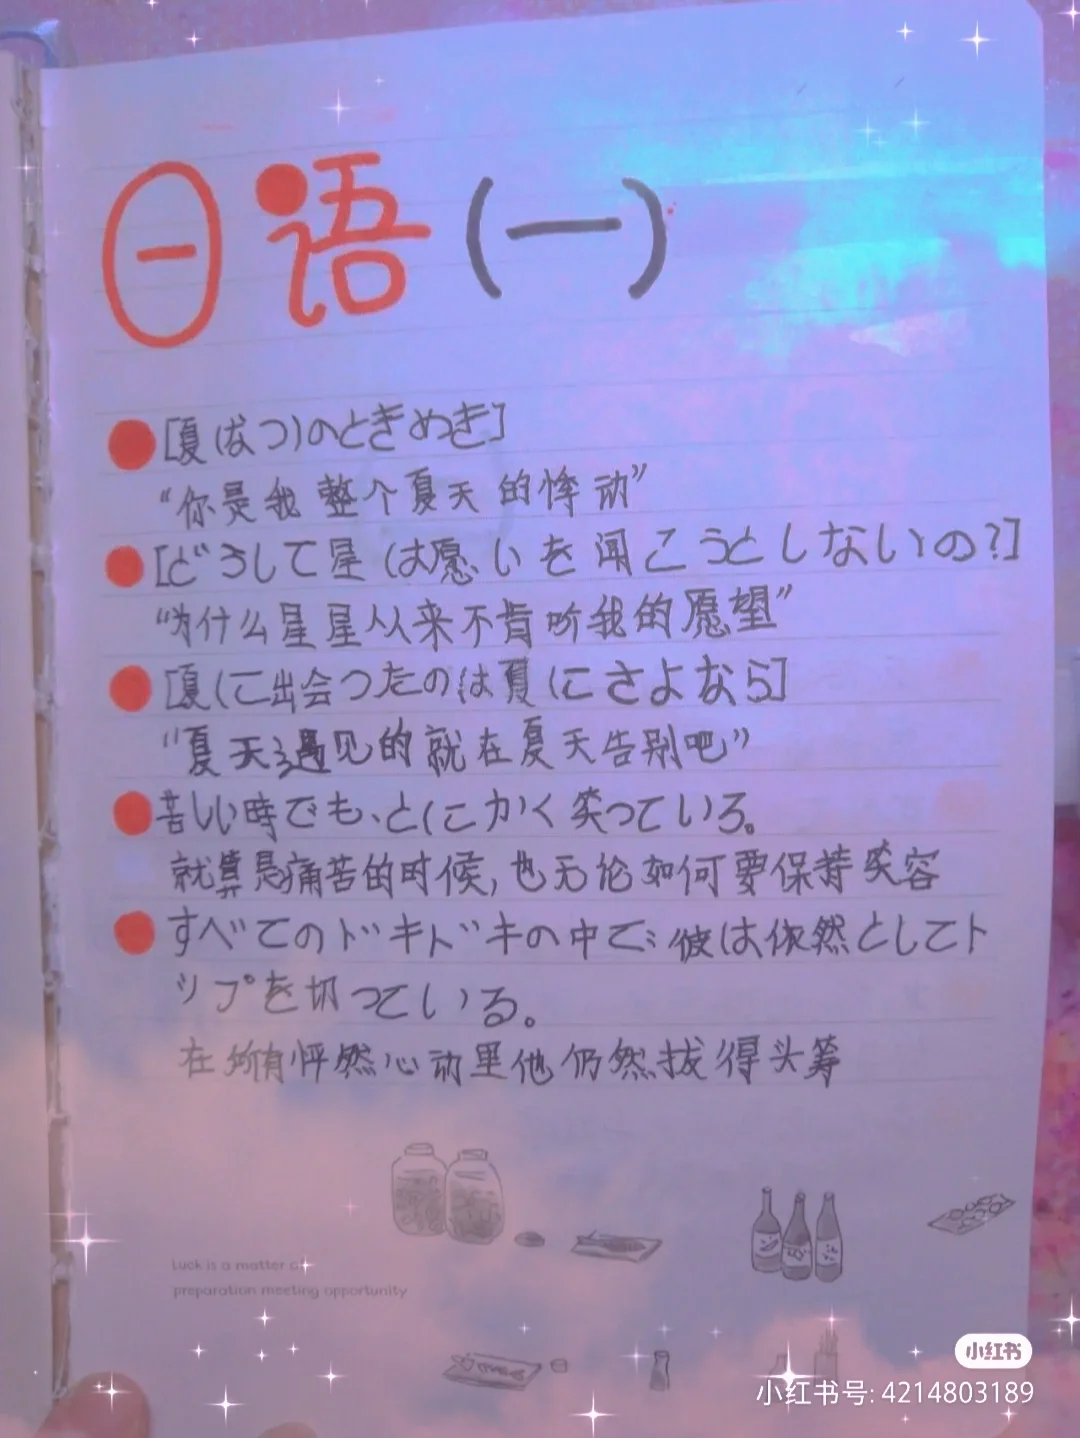 日语(一)
[夏(なつ)のときめき]
“你是我整个夏天的悸动”
[どうして星は愿いを闻こうとしないの?]
“为什么星星从来不肯听我的愿望”
[夏に出会つたのは夏にさよなら]
“夏天遇见的就在夏天告别吧”
苦しい時でも、とにかく笑っている。
就算是痛苦的时候,也无论如何要保持笑容
すべてのドッキドッキの中で、彼は依然としてト
ップを切っている。
在所有怦然心动里他仍然拔得头筹
Luck is a matter
preparation meeting opportunity
小红书
小红书号: 4214803189